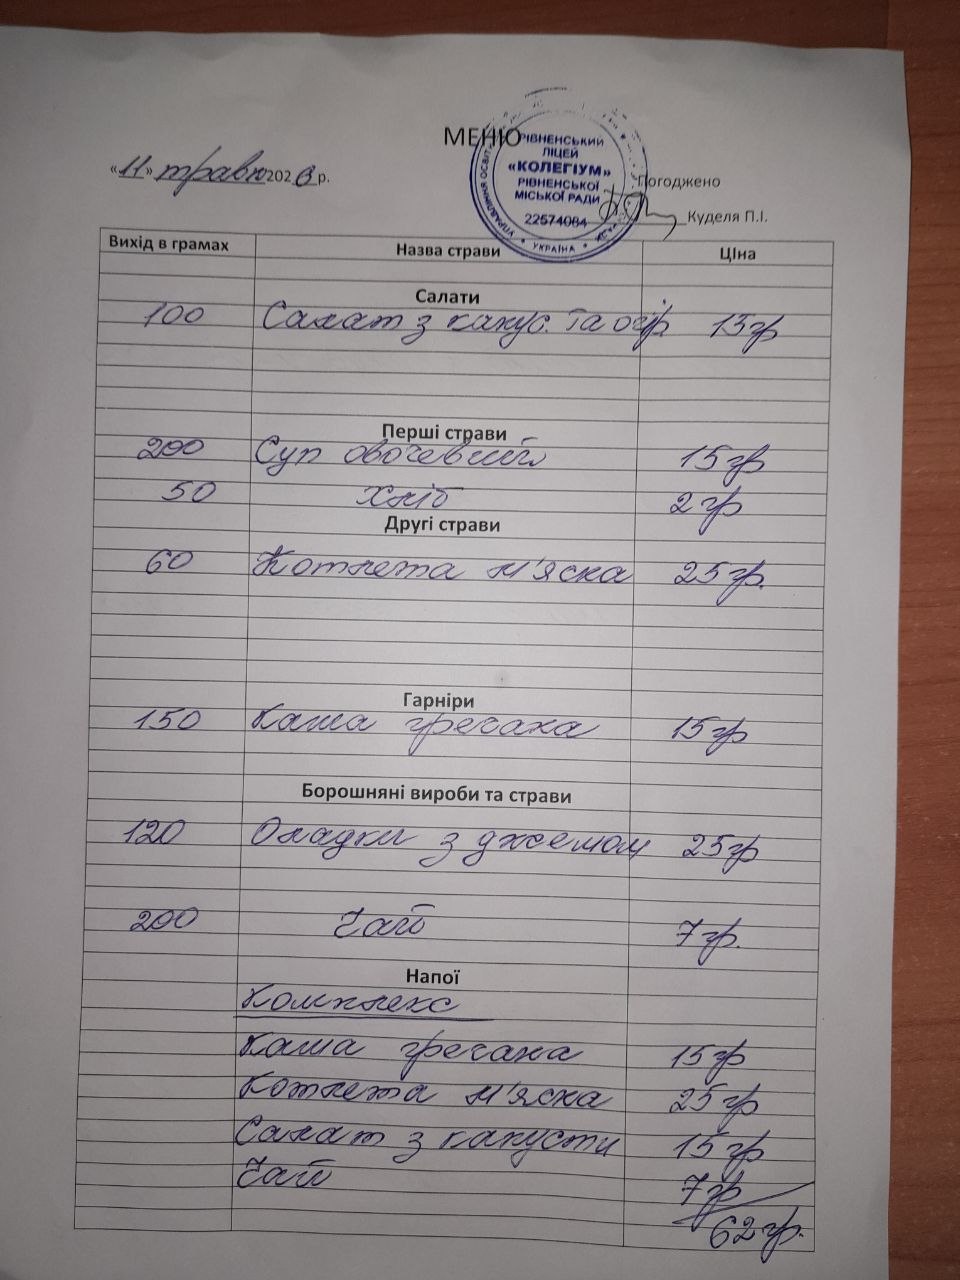 МЕНЮ
РІВНЕНСЬКИЙ
ЛІЦЕЙ
«КОЛЕГІУМ»
РІВНЕНСЬКОЇ
МІСЬКОЇ РАДИ
22574084
УПРАВЛІННЯ ОСВІТ
* УКРАЇНА *
«11» травня 2023 р.
Погоджено
Куделя П.І.
Вихід в грамах Назва страви Ціна
Салати
100 Салат з капус. та огір. 15гр
Перші страви
200 Суп овочевий 15гр
50 Хліб 2гр
Другі страви
60 Котлета м'ясна 25гр.
Гарніри
150 Каша гречана 15гр
Борошняні вироби та страви
120 Оладки з джемом 25гр
200 Чай 7гр.
Напої
Комплекс
Каша гречана 15гр
Котлета м'ясна 25гр
Салат з капусти 15гр
Чай 7гр
62гр.